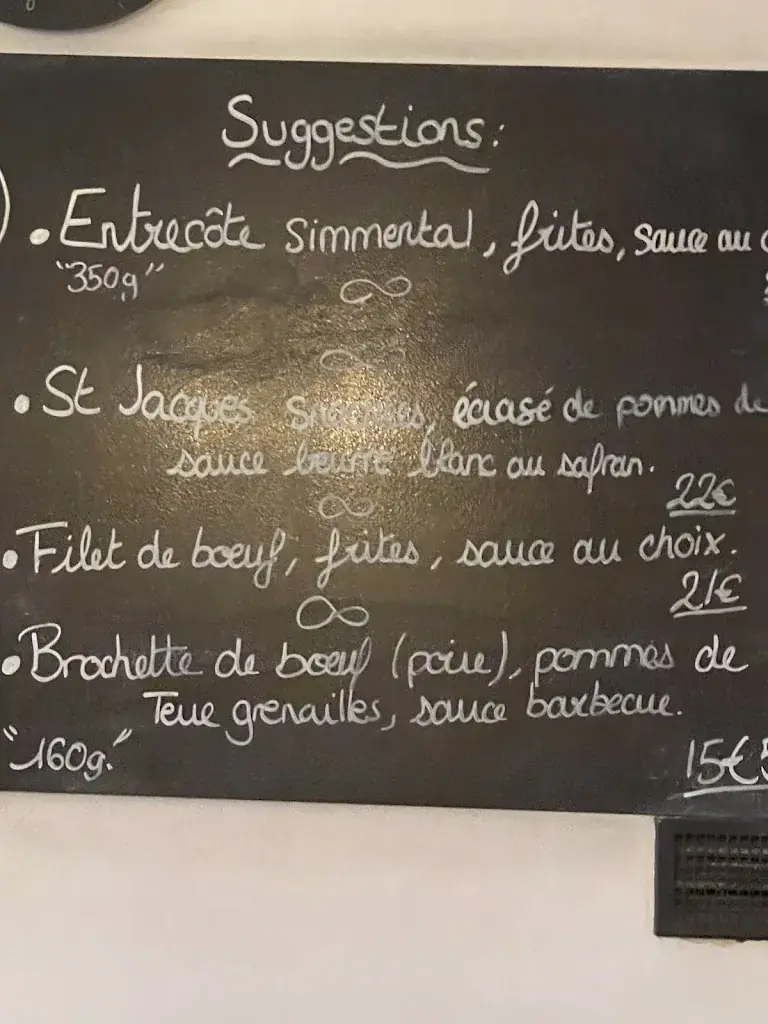 Suggestions:
• Entrecôte Simmental, frites, sauce au
"350g"
• St Jacques snackées, écrasé de pommes de
sauce beurre blanc au safran.
22€
• Filet de boeuf, frites, sauce au choix.
21€
• Brochette de boeuf (poire), pommes de
Terre grenailles, sauce barbecue.
"160g."
15€5